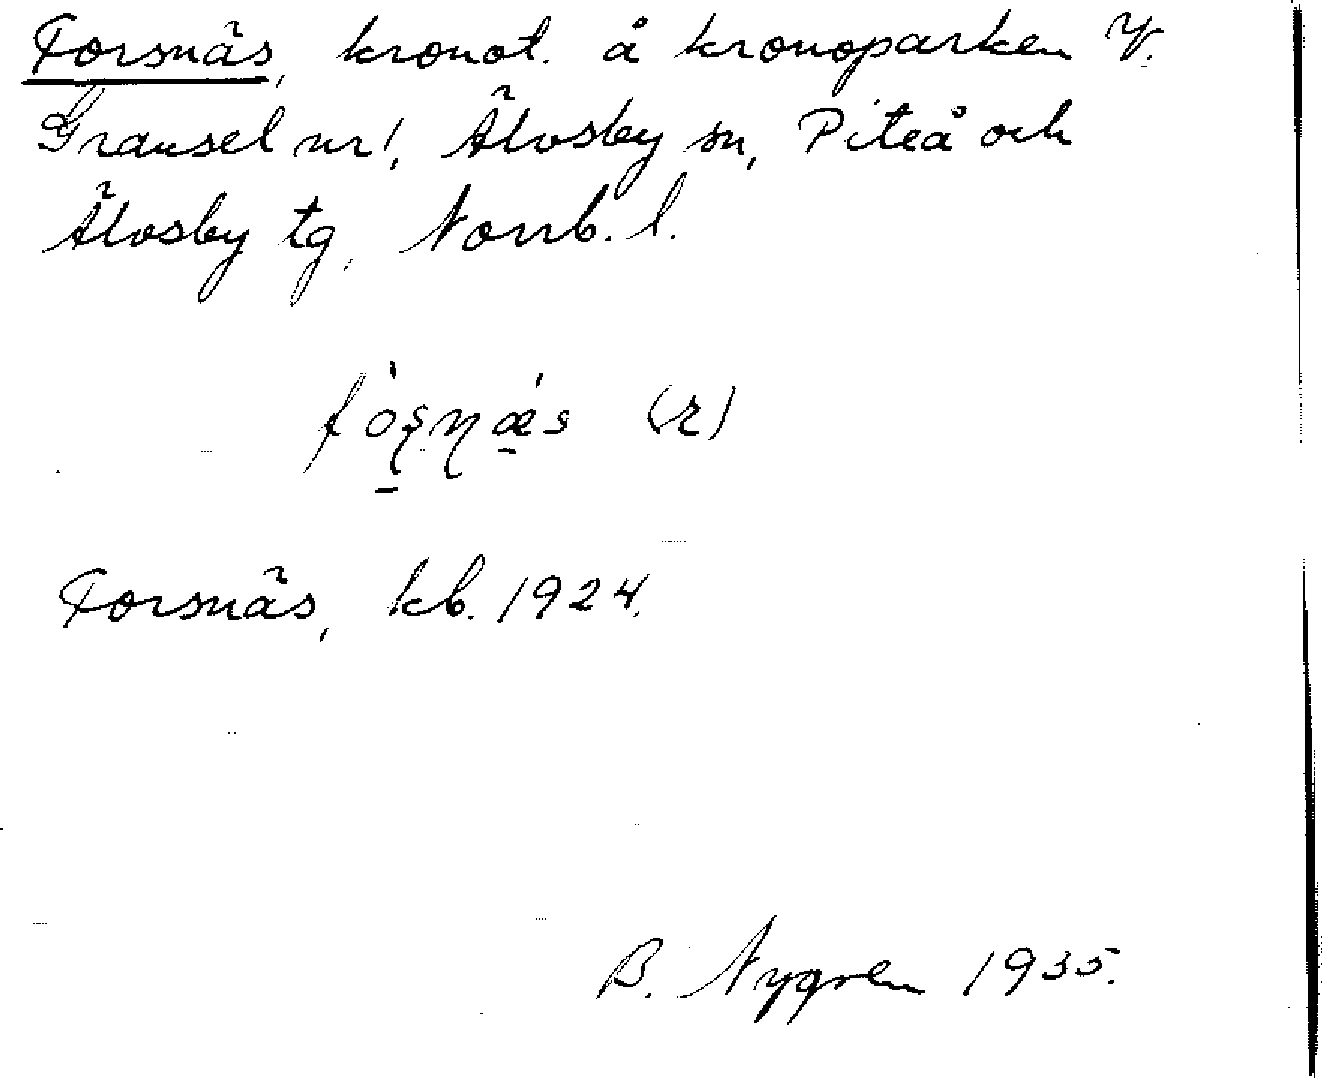 Forsnäs, kronot. å kronoparken V.
Gransel nr 1, Älvsby sn, Piteå och
Älvsby tg, Norrb. l.
fòʂɳǽs (r)
Forsnäs, kb. 1924.
B. Nygren 1935.